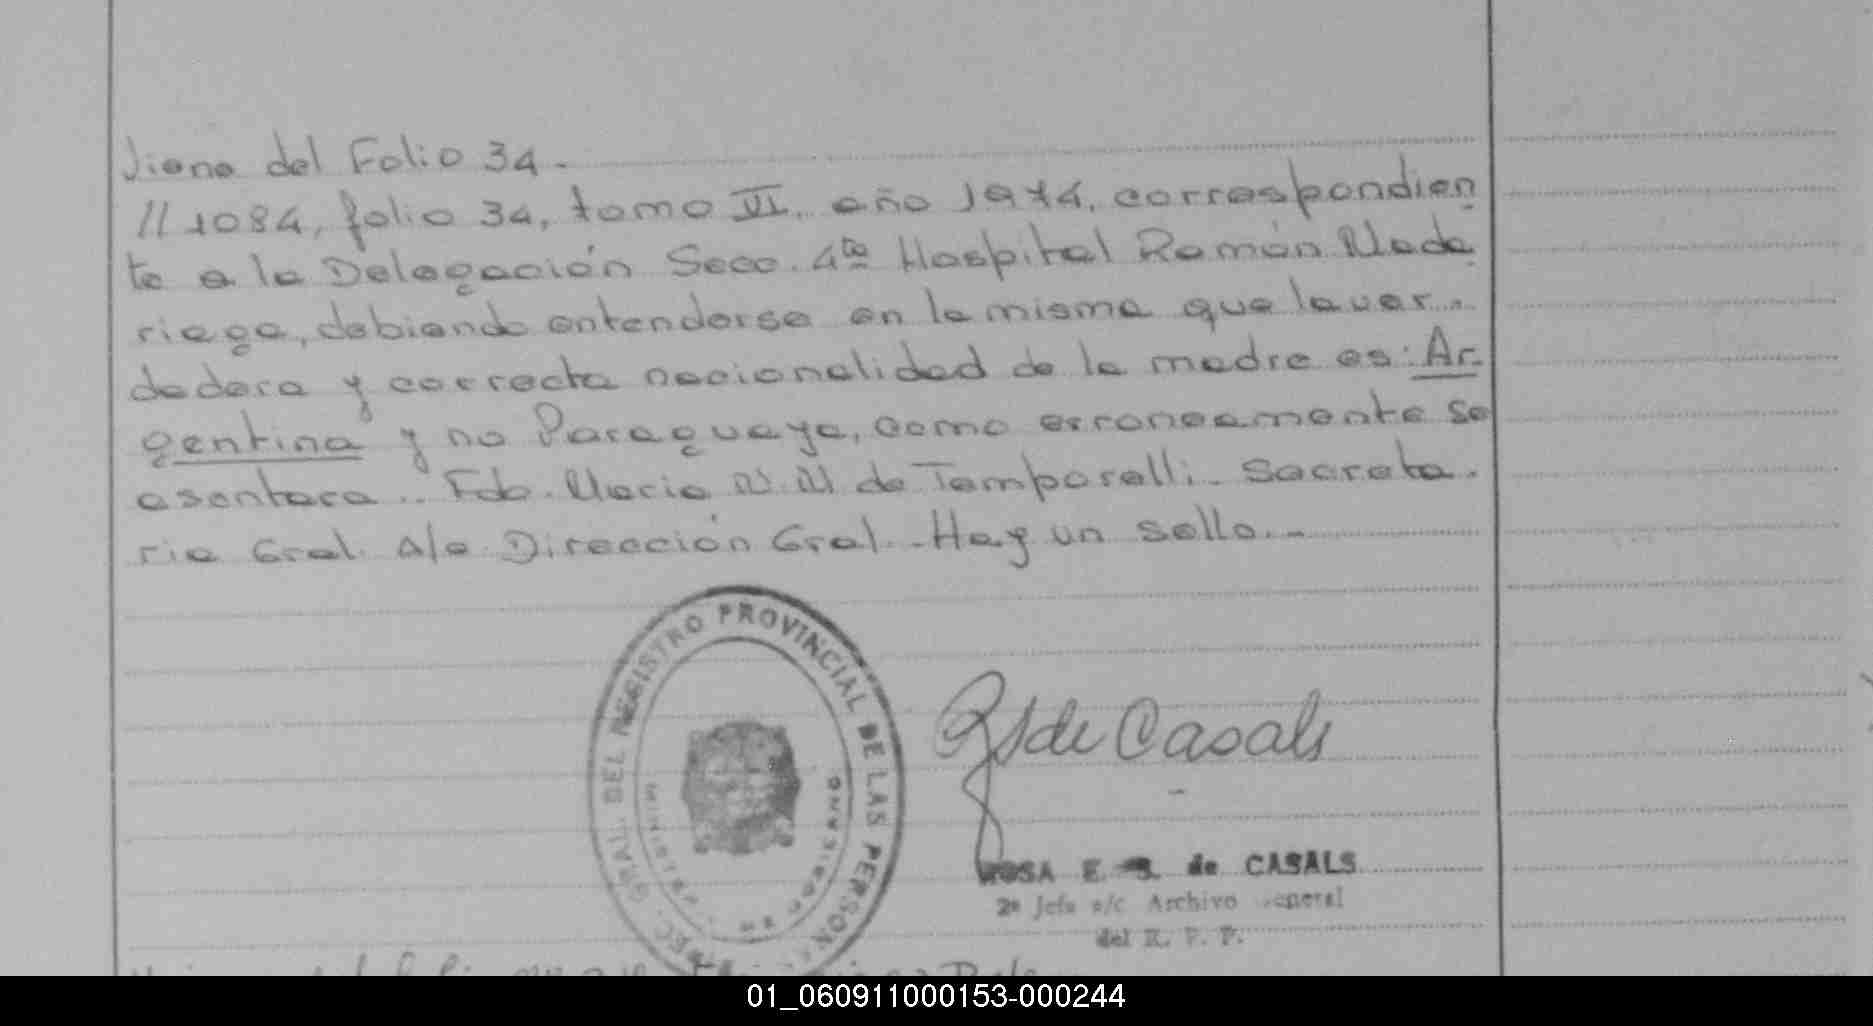 Viene del Folio 34.-
// 1084, folio 34, tomo VI, año 1974, correspondien
te a la Delegación Secc. 4ta Hospital Ramón Mada
riaga, debiendo entenderse en la misma que la ver..
dadera y correcta nacionalidad de la madre es: Ar-
gentina y no Paraguaya, como erroneamente se
asentara.. Fdo. María N. M de Temporelli. Secreta.
ria Gral. a/c. Dirección Gral.. Hay un sello.-
GRAL. DEL REGISTRO PROVINCIAL DE LAS PERSON
R S de Casals
ROSA E. S. de CASALS
2ª Jefa a/c Archivo General
del R. P. P.
01_060911000153-000244